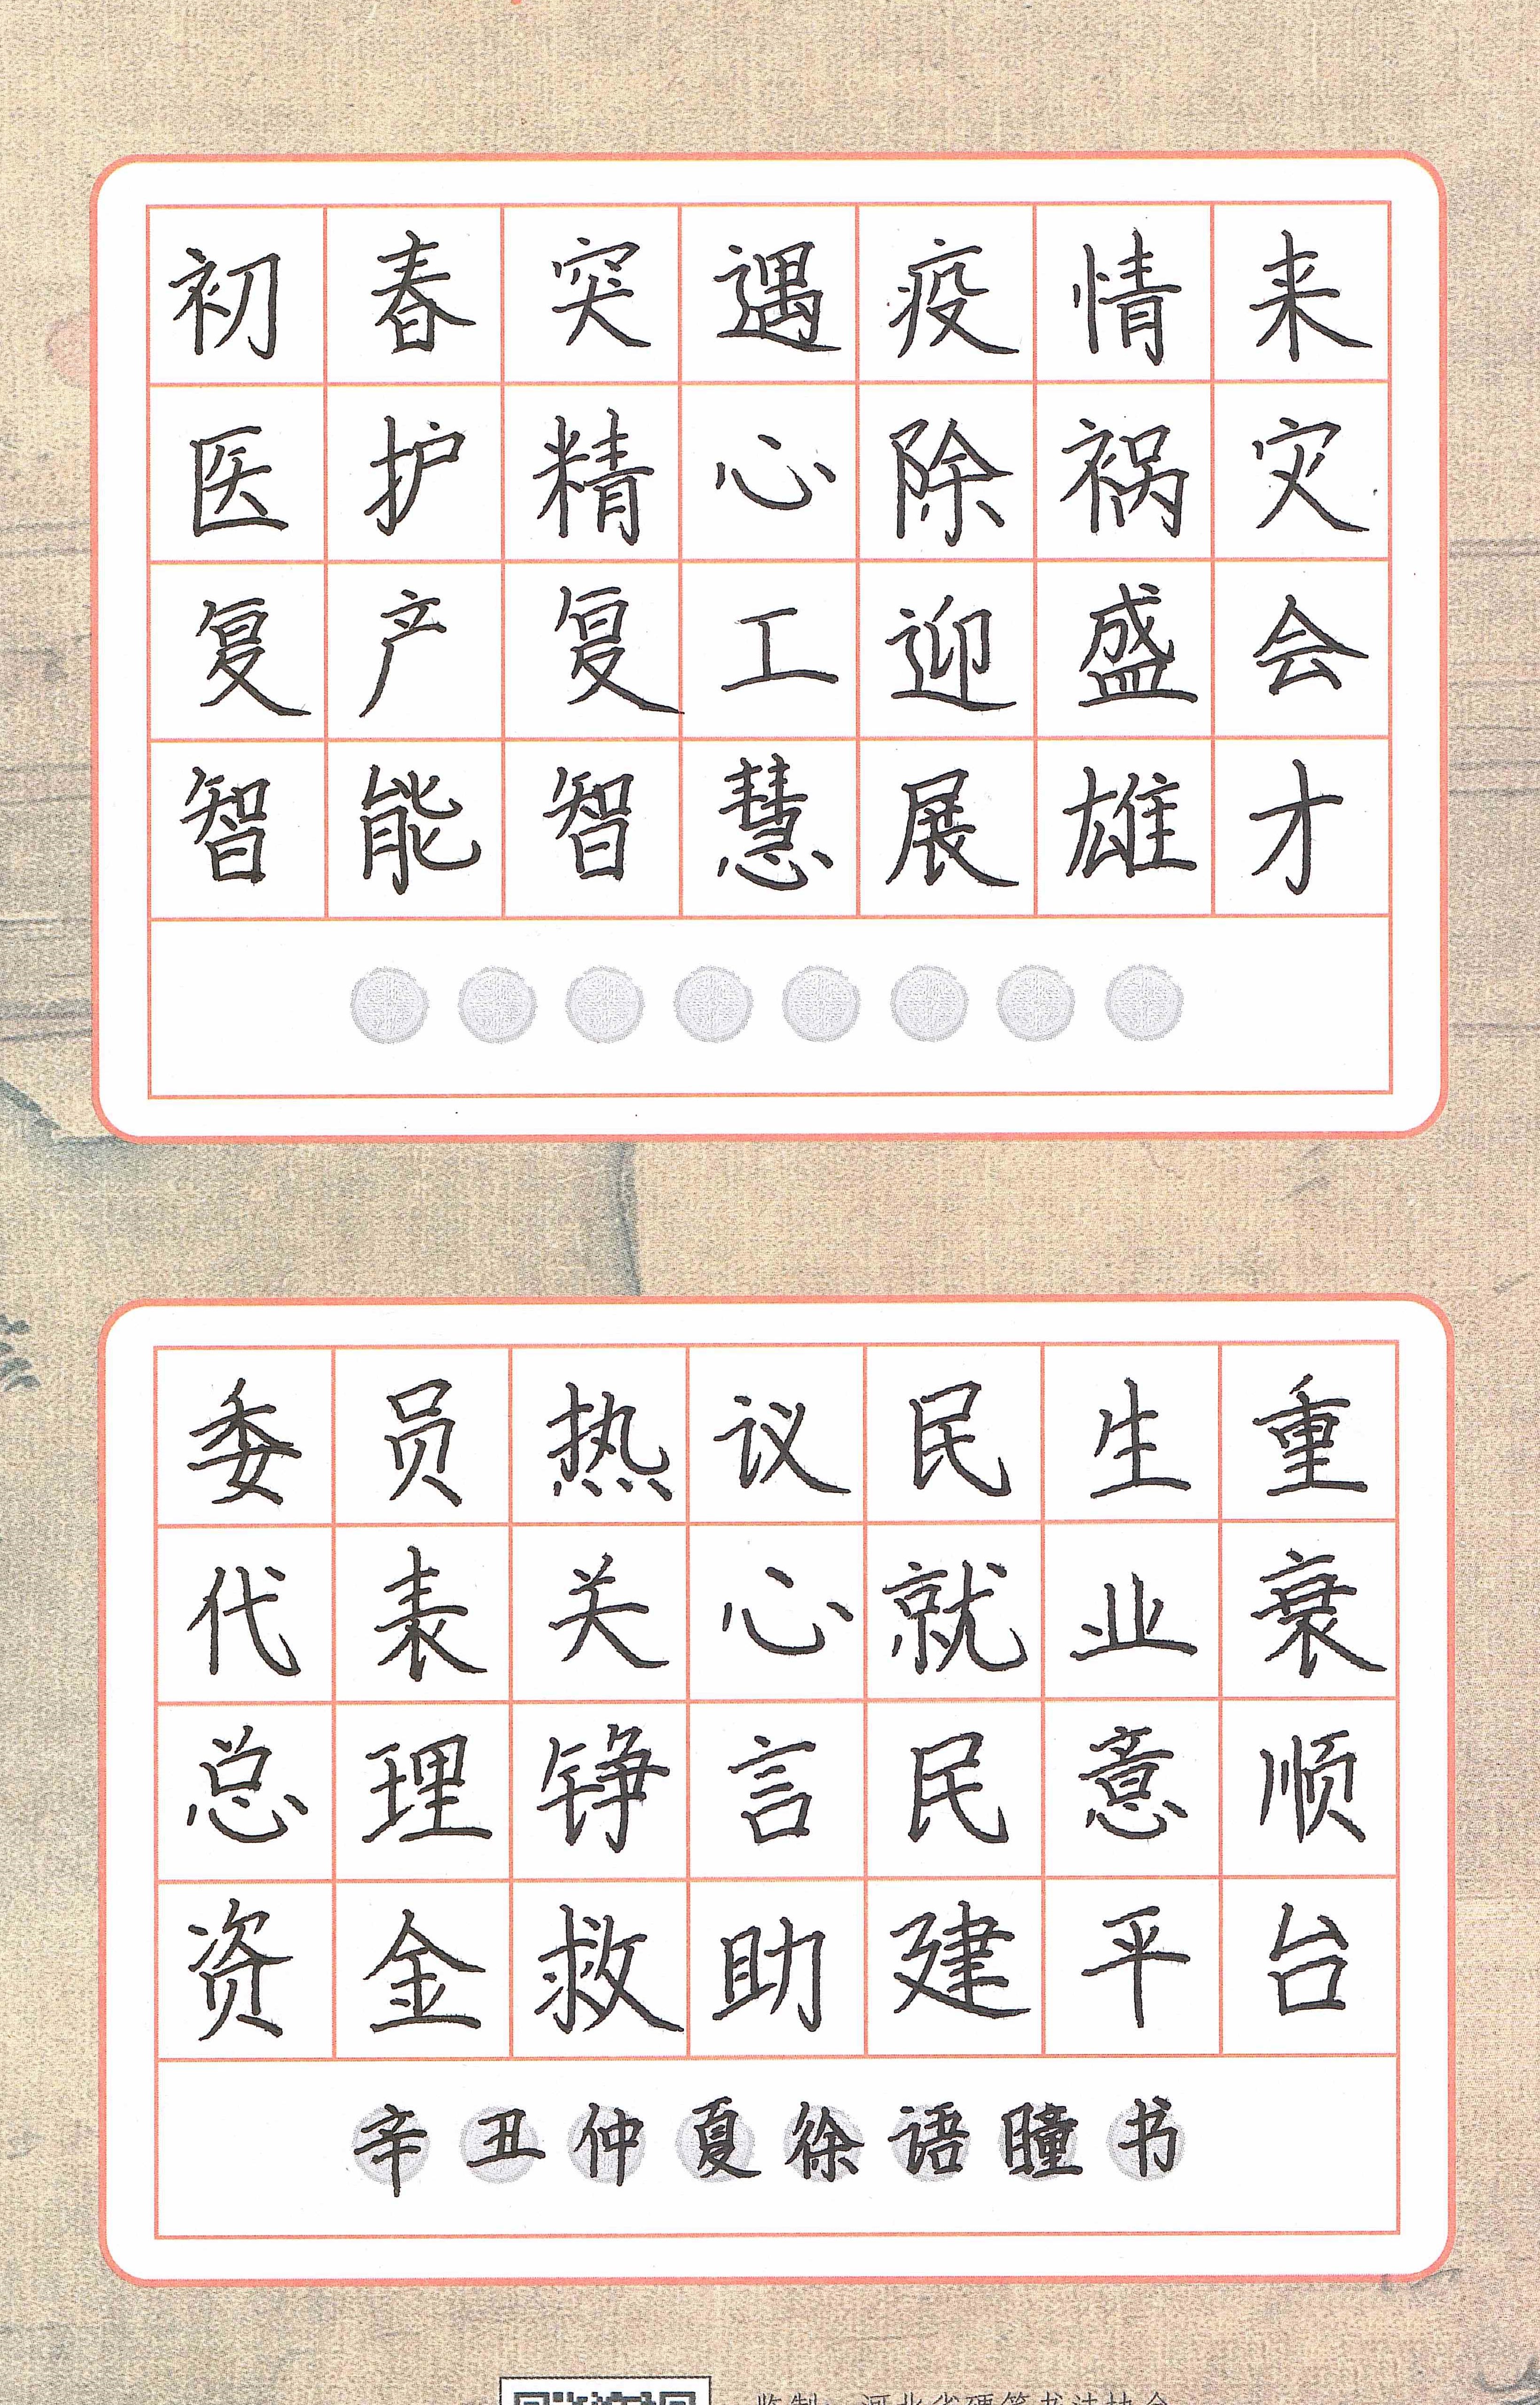 初春突遇疫情来
医护精心除祸灾
复产复工迎盛会
智能智慧展雄才
委员热议民生重
代表关心就业衰
总理铮言民意顺
资金救助建平台
辛丑仲夏徐语瞳书
监制 河北省硬笔书法协会